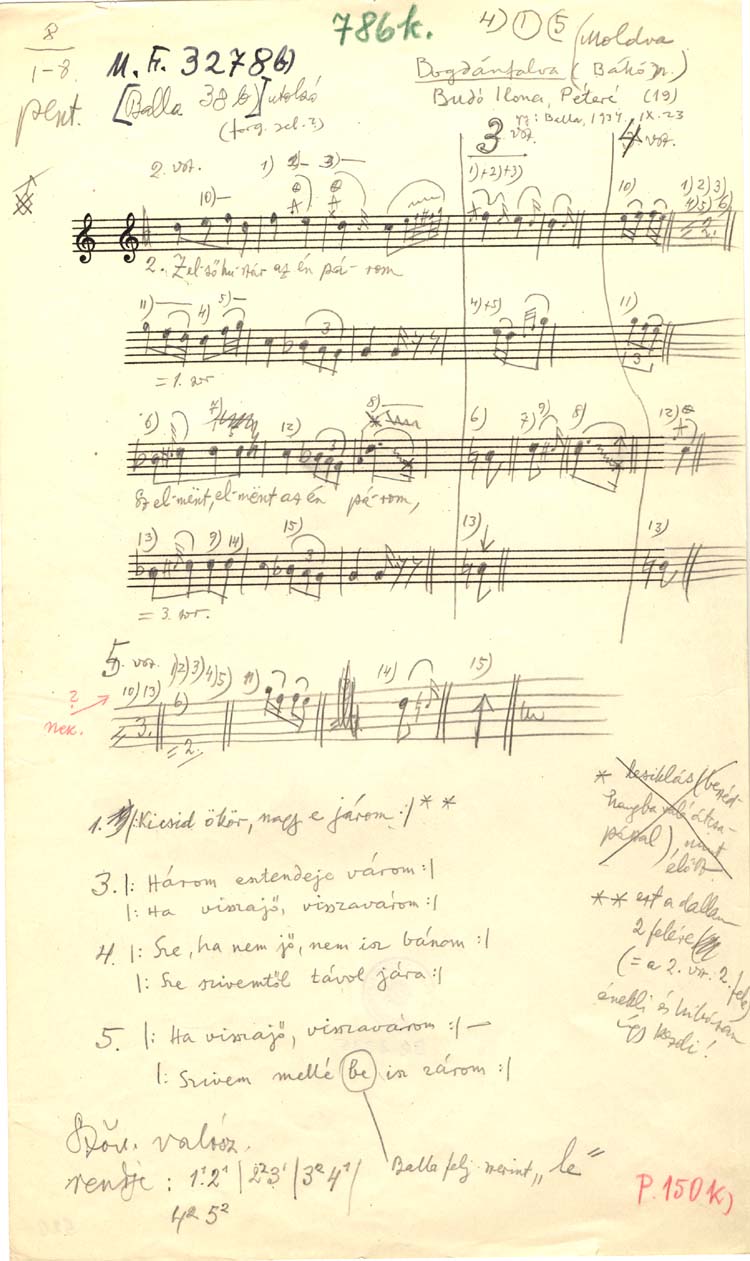 786k.
4) ① ⑤
8
1-8.
pent.
M. F. 3278b)
[Balla 38b] utolsó
Moldva
Bogdánfalva (Bákó m.)
Budó Ilona, Péteré (19)
gy: Balla, 1934. IX. 23
2. vsz.
3 vsz.
4 vsz.
1) 2) 3)
10)
1)+2)+3)
10)
1) 2) 3)
4) 5) 6)
2.
2. Zel-ső hu-szár az én pá- rom
11) 4) 5) 3
4)+5)
11)
3
= 1. sor
6) 7) 12) 3 8)
6) 7) 9) 8)
12)
Sz el-mënt, el-mënt az én pá-rom,
13) 9) 14) 15) 3
13)
13)
= 3. sor.
5. vsz. 1) 2) 3) 4) 5) 11) 14) 15)
10) 13) 6)
3. =2.
?
nek.
1. |: Kicsid ökör, nagy e járom :| * *
3. |: Három esztendeje várom :|
|: Ha visszajő, visszavárom :|
4. |: Sze, ha nem jő, nem isz bánom :|
|: Sze szivemtől távol jára :|
5. |: Ha visszajő, visszavárom :|
|: Szivem mellé be isz zárom :|
* * ezt a dallam
2 felére
(= a 2. vsz. 2. fele)
énekli és
így kezdi!
Szöv. valósz.
rendje : 1¹ 2¹ | 2² 3¹ | 3² 4¹ |
4² 5²
Balla felj. szerint „le"
P. 150. k)